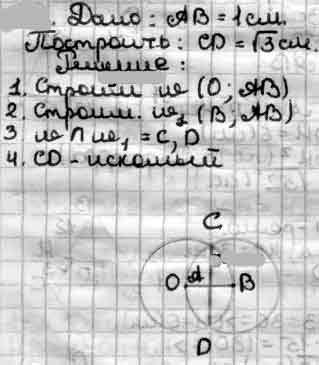 . Дано: AB = 1 см.
Построить: CD = √3 см.
Решение:
1. Строим ω (O; AB)
2. Строим. ω₁ (B; AB)
3 ω ∩ ω₁ = C, D
4. CD - искомый
C
O A B
D